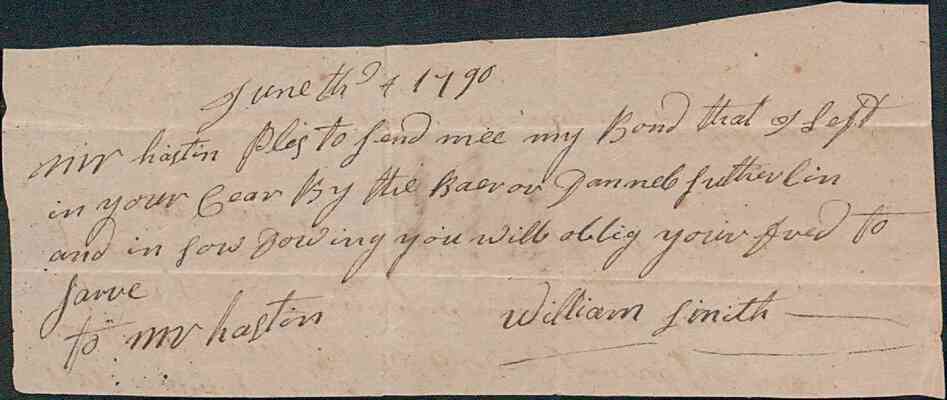 June th 4 1790
mr hastin Ples to send mee my Bond that I Left
in your Cear By the Baeror Dannel sutherlin
and in sow Dowing you will oblig your fred to
sarve
to mr hastin William smith